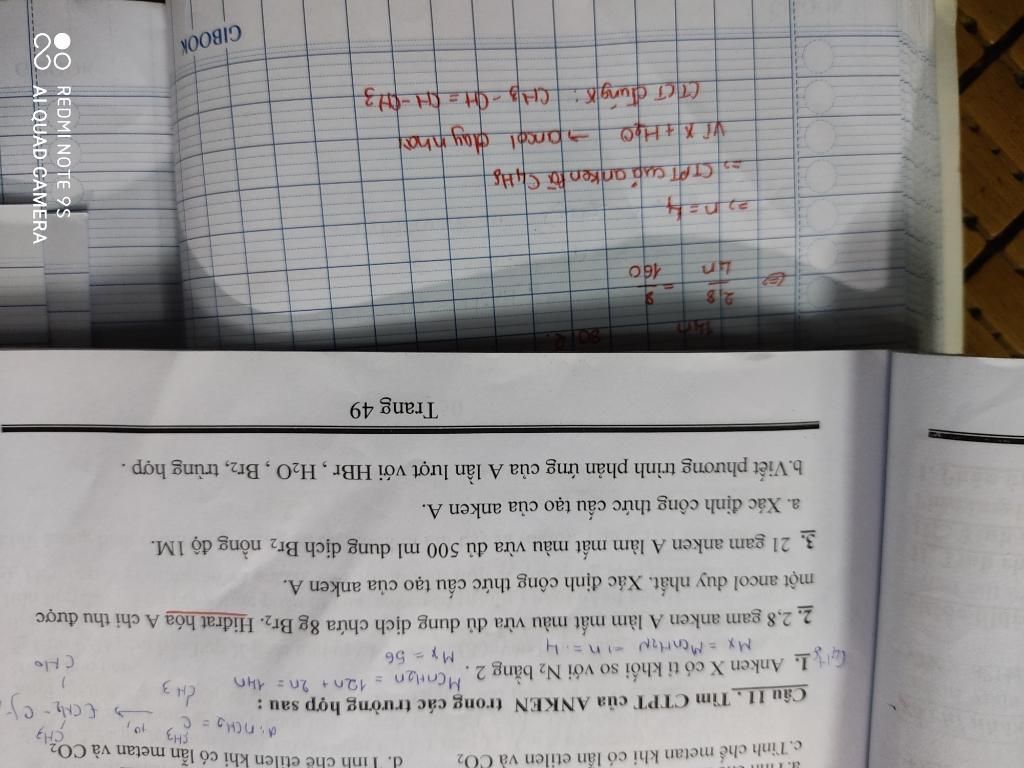 c.Tinh chế metan khi có lẫn etilen và CO2
d. Tinh chế etilen khi có lẫn metan và CO2
Câu 11. Tìm CTPT của ANKEN trong các trường hợp sau :
MCnH2n = 12n + 2n = 14n
1. Anken X có tỉ khối so với N2 bằng 2 .
Mx = 56
Mx = MCnH2n n = 4
2. 2,8 gam anken A làm mất màu vừa đủ dung dịch chứa 8g Br2. Hiđrat hóa A chỉ thu được
một ancol duy nhất. Xác định công thức cấu tạo của anken A.
3. 21 gam anken A làm mất màu vừa đủ 500 ml dung dịch Br2 nồng độ 1M.
a. Xác định công thức cấu tạo của anken A.
b.Viết phương trình phản ứng của A lần lượt với HBr , H2O , Br2, trùng hợp .
Trang 49
14n
⇔ 2,8 = 8
4n 160
=> n = 4
=> CTPT của anken là C4H8
Vì X + H2O → ancol duy nhất
CTCT đúng : CH3 - CH = CH - CH3
GIBOOK
REDMI NOTE 9S
AI QUAD CAMERA